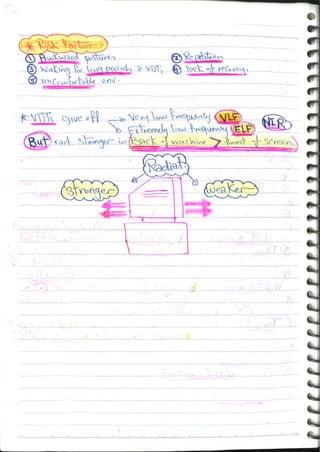 * Risk Factor
① Awkward postures ② Repetition
③ Waking for long periods @ VDT, ④ lack of recovery.
⑤ uncomfortable env.
* VDTs give off → Very low frequency VLF NIR
→ Extremely low frequency ELF
But rad. stronger in Back of machine > front of screen.
Radiat.
Stronger weaker